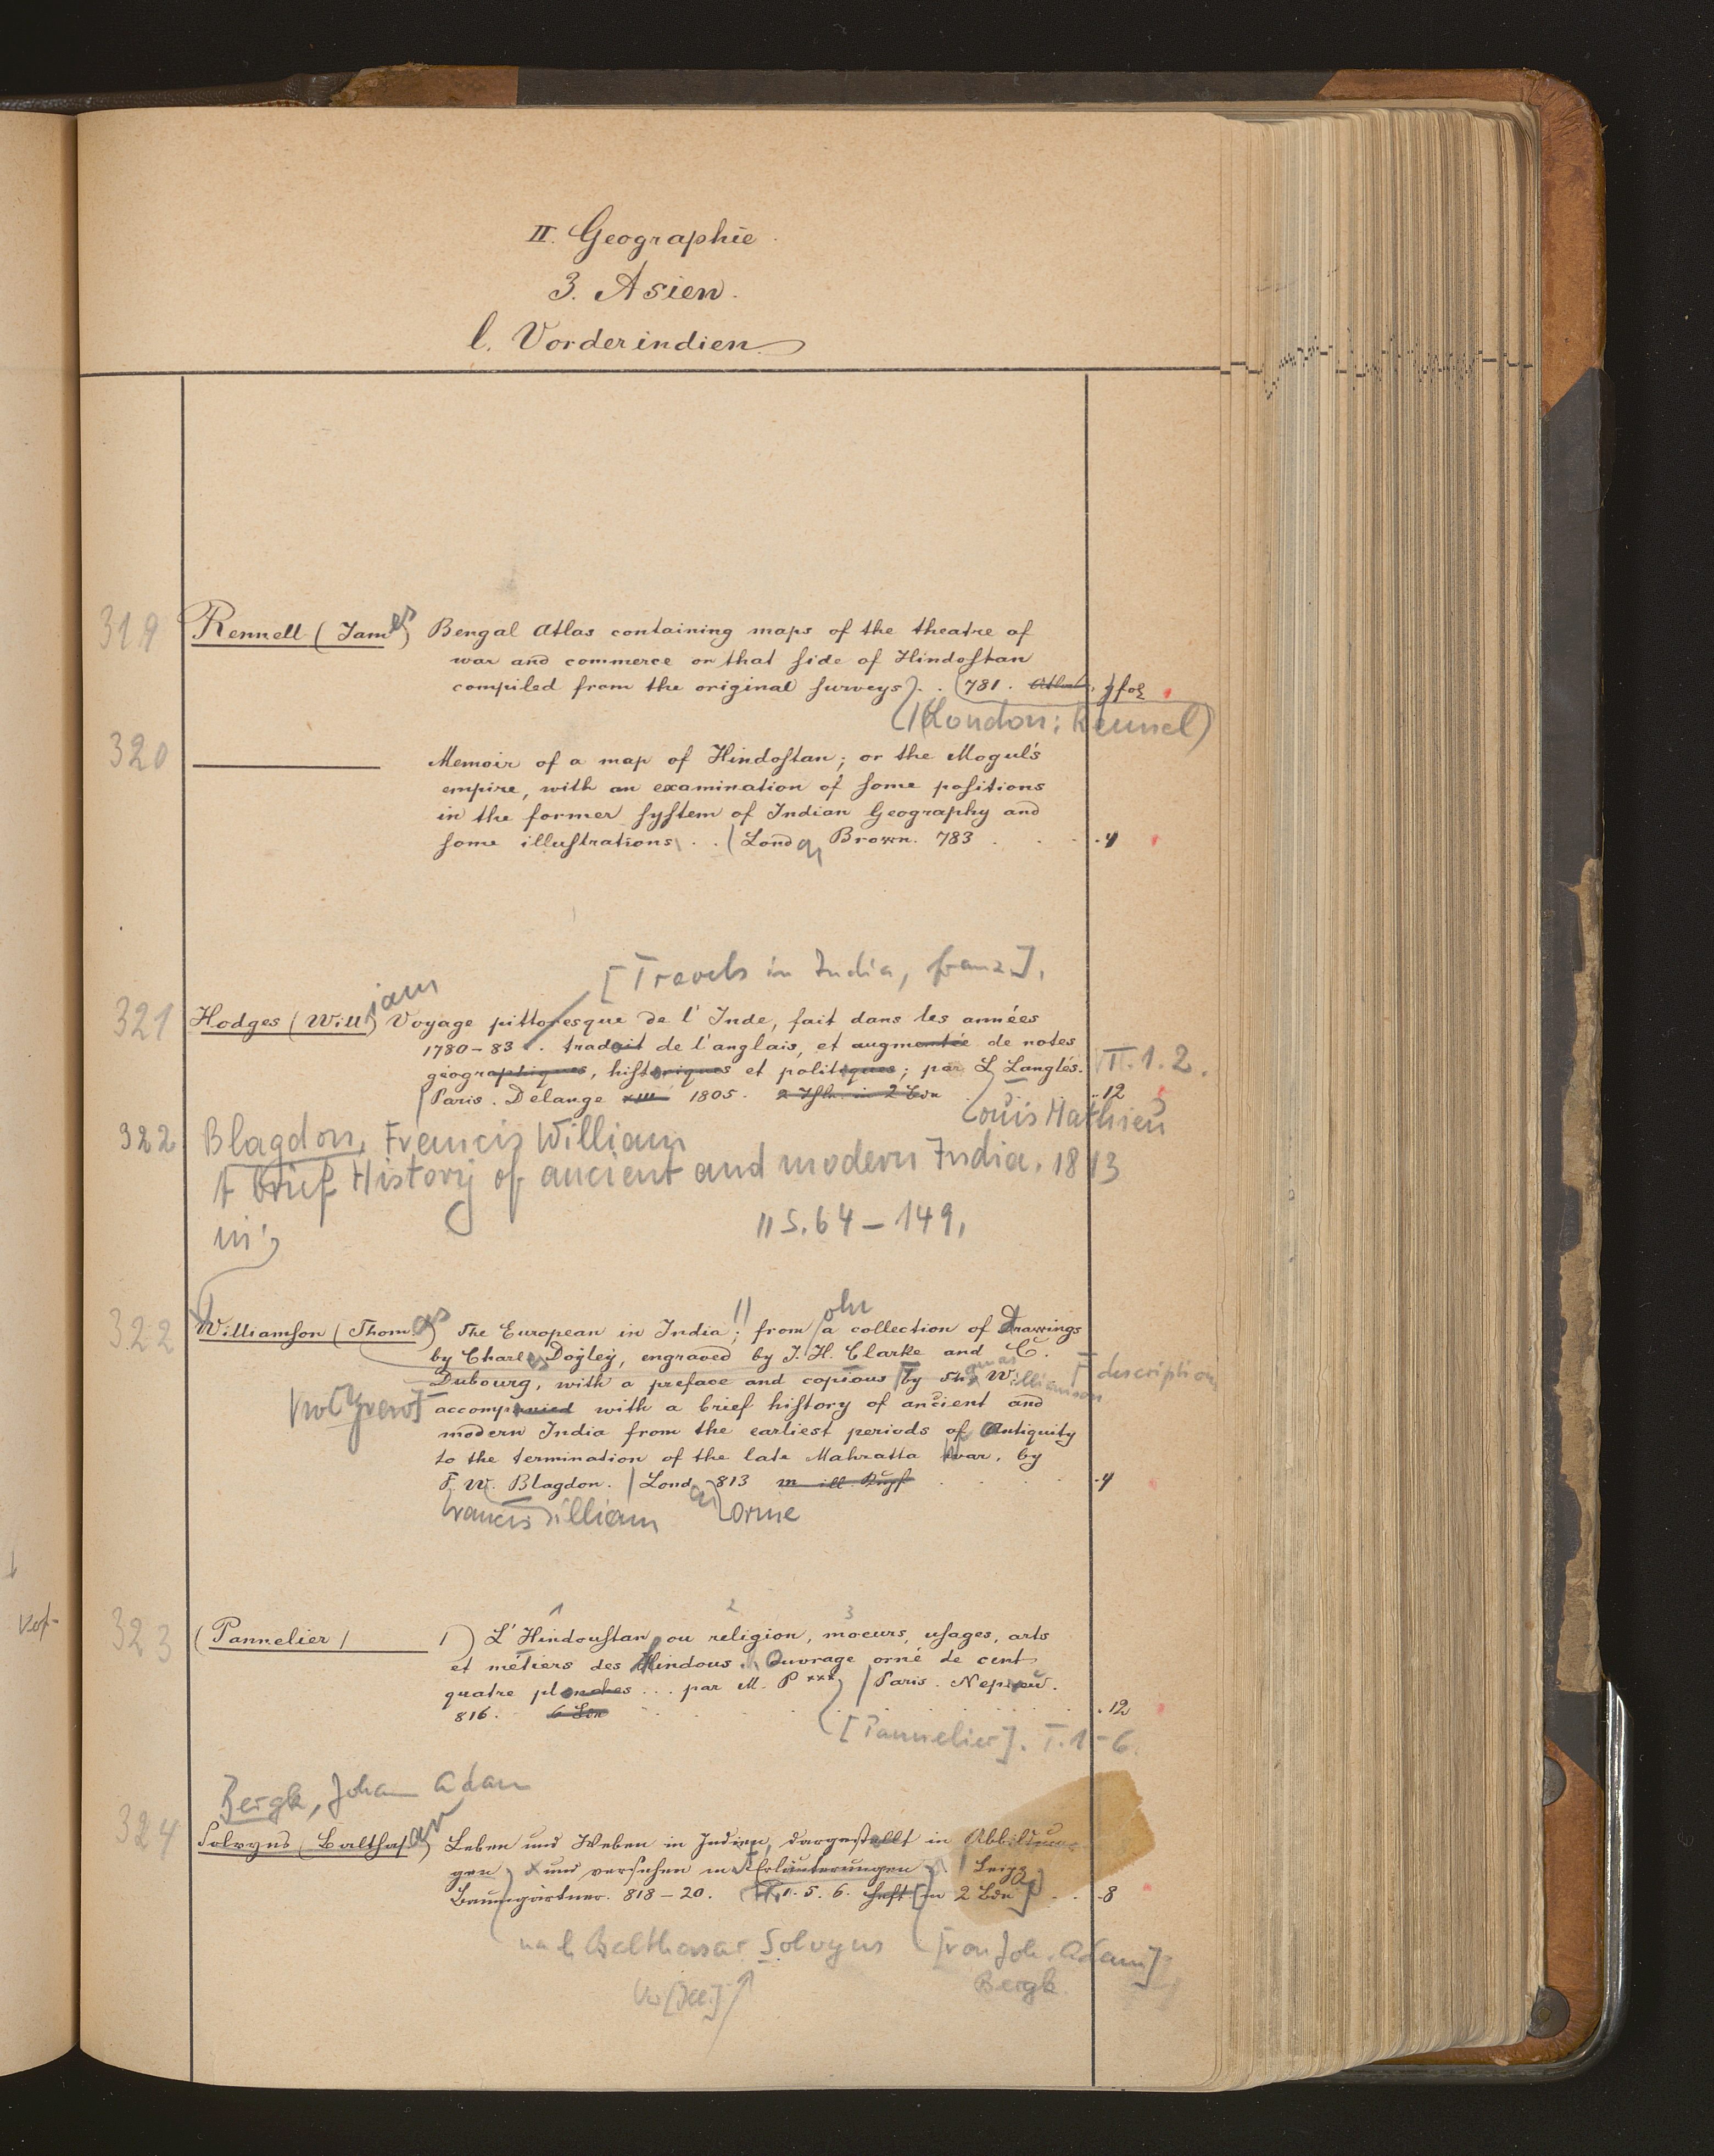 II. Geographie.
3. Asien.
l. Vorderindien.
319 Rennell (James) Bengal Atlas containing maps of the theatre of
war and commerce on that side of Hindostan
compiled from the original surveys). . (781. Atlas. gfol
(London: Rennel)
320 Memoir of a map of Hindostan; or the Mogul's
empire, with an examination of some positions
in the former system of Indian Geography and
some illustrations . . (London Brown. 783 . . . 4
[Travels in India, franz.].
321 Hodges (William) Voyage pittoresque de l'Inde, fait dans les années
1780-83 . traduit de l'anglais, et augmentée de notes
géographiques, historiques et politiques; par L Langlés. T. 1. 2.
Paris. Delange XIII 1805. 2 Thle. in 2 Bdn . 12
Louis Mathieu
322 Blagdon, Francis William
A brief History of ancient and modern India. 1813
in: " S. 64-149,
322 Williamson (Thomas) The European in India; from a collection of Drawings
by Charles Doyley, engraved by J. H. Clarke and C.
Dubourg, with a preface and copious by Thomas Williamson description
accompanied with a brief history of ancient and
modern India from the earliest periods of Antiquity
to the termination of the late Mahratta War, by
F. W. Blagdon. (London 813 m. ill. Kupf . . . 4
Francis William Orme
1 2 3
323 (Pannelier) 1) L'Hindoustan, ou religion, moeurs, usages, arts
et métiers des Hindous. Ouvrage orné de cent
quatre planches ... par M. P*** / Paris. Nepveu.
816. 6 Bde . 12
[Pannelier]. T. 1-6.
Bergk, Johann Adam
324 Solvyns (Balthasar) Leben und Weben in Indien, dargestellt in Abbildun-
gen und versehen mit Erläuterungen Leipz
Baumgärtner. 818-20. 1. 5. 6. Heft [in 2 Bdn] . . 8
nach Balthasar Solvyns [von Joh. Adam]
Bergk